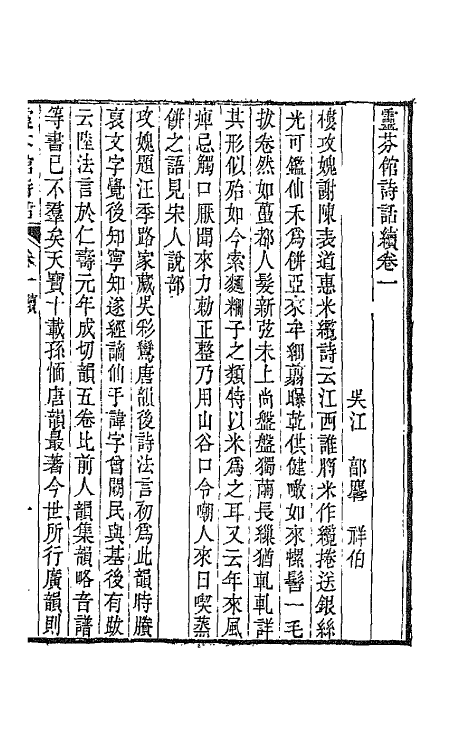 靈芬館詩話續卷一
吳江 郭麐 祥伯
樓攻媿謝陳表道惠米纜詩云江西誰將米作纜捲送銀絲
光可鑑仙禾爲餅亞來牟細剪曝乾供健噉如來螺髻一毛
拔卷然如蠆都人髮新弦未上尚盤盤獨繭長繅猶軋軋詳
其形似殆如今索麵糊子之類特以米爲之耳又云年來風
痺忌觸口厭聞來力勅正整乃用山谷口令嘲人來日喫蒸
餅之語見宋人說部
攻媿題汪季路家藏吳彩鸞唐韻後詩法言初爲此韻時賸
裒文字覺後知寧知遂經謫仙手諱字曾闕民與基後有跋
云陸法言於仁壽元年成切韻五卷比前人韻集韻略音譜
等書已不羣矣天寶十載孫愐唐韻最著今世所行廣韻則
靈芬館詩話 卷一續 一